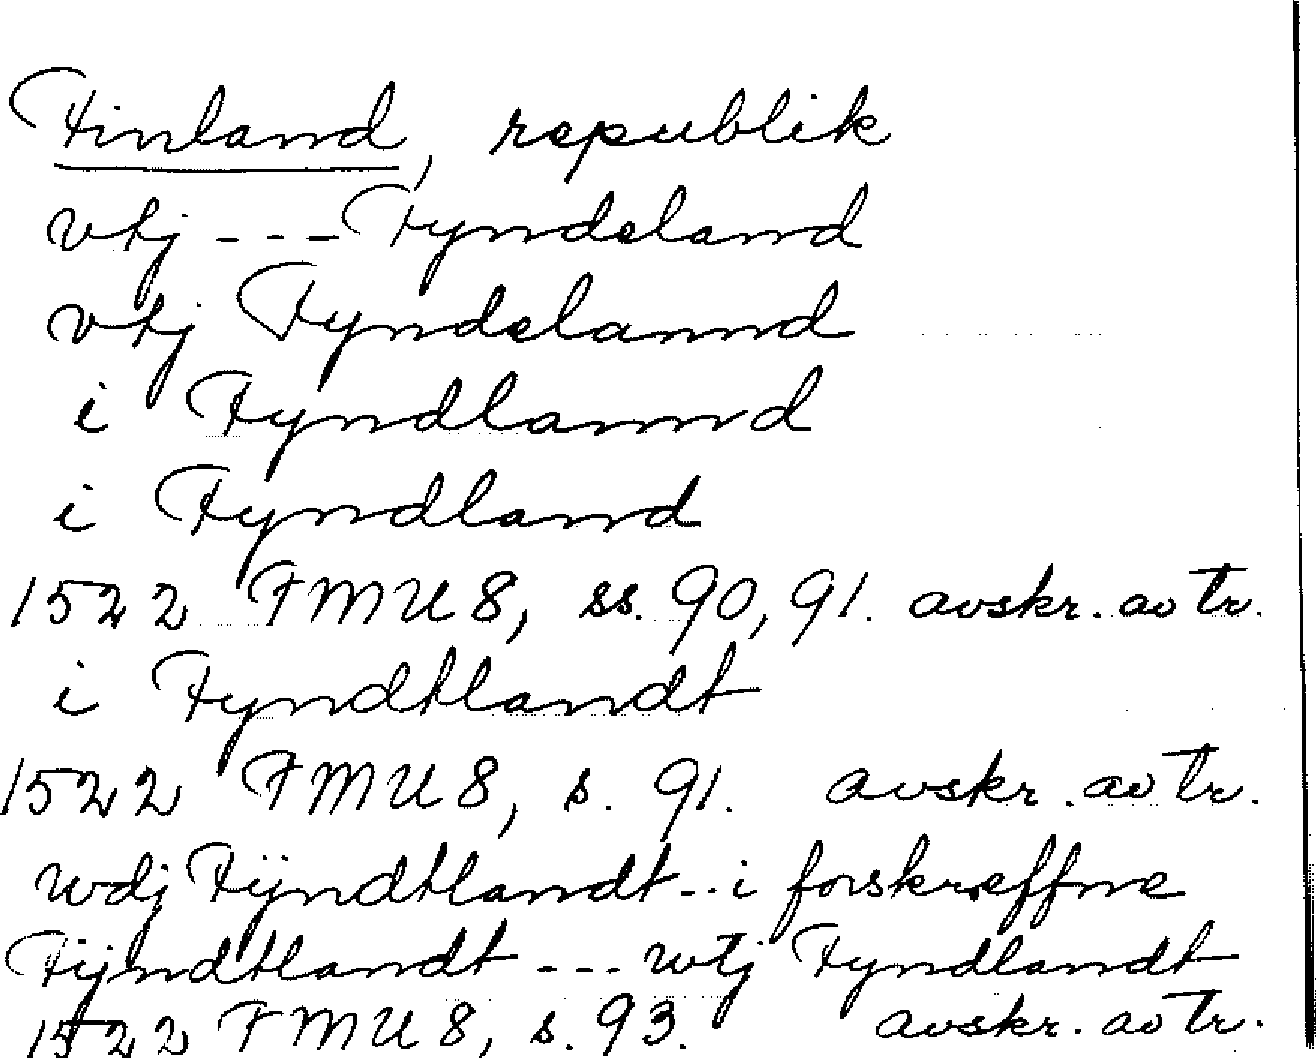 Finland, republik
vtj --- Fyndeland
vtj Fyndelannd
i Fyndlannd
i Fyndland
1522 FMU 8, ss. 90, 91. avskr. av tr.
i Fyndtlandt
1522 FMU 8, s. 91. avskr. av tr.
wdj Fÿndtlandt -- i forskreffne
Fÿndtlandt --- wtj Fyndlandt
1522 FMU 8, s. 93. avskr. av tr.